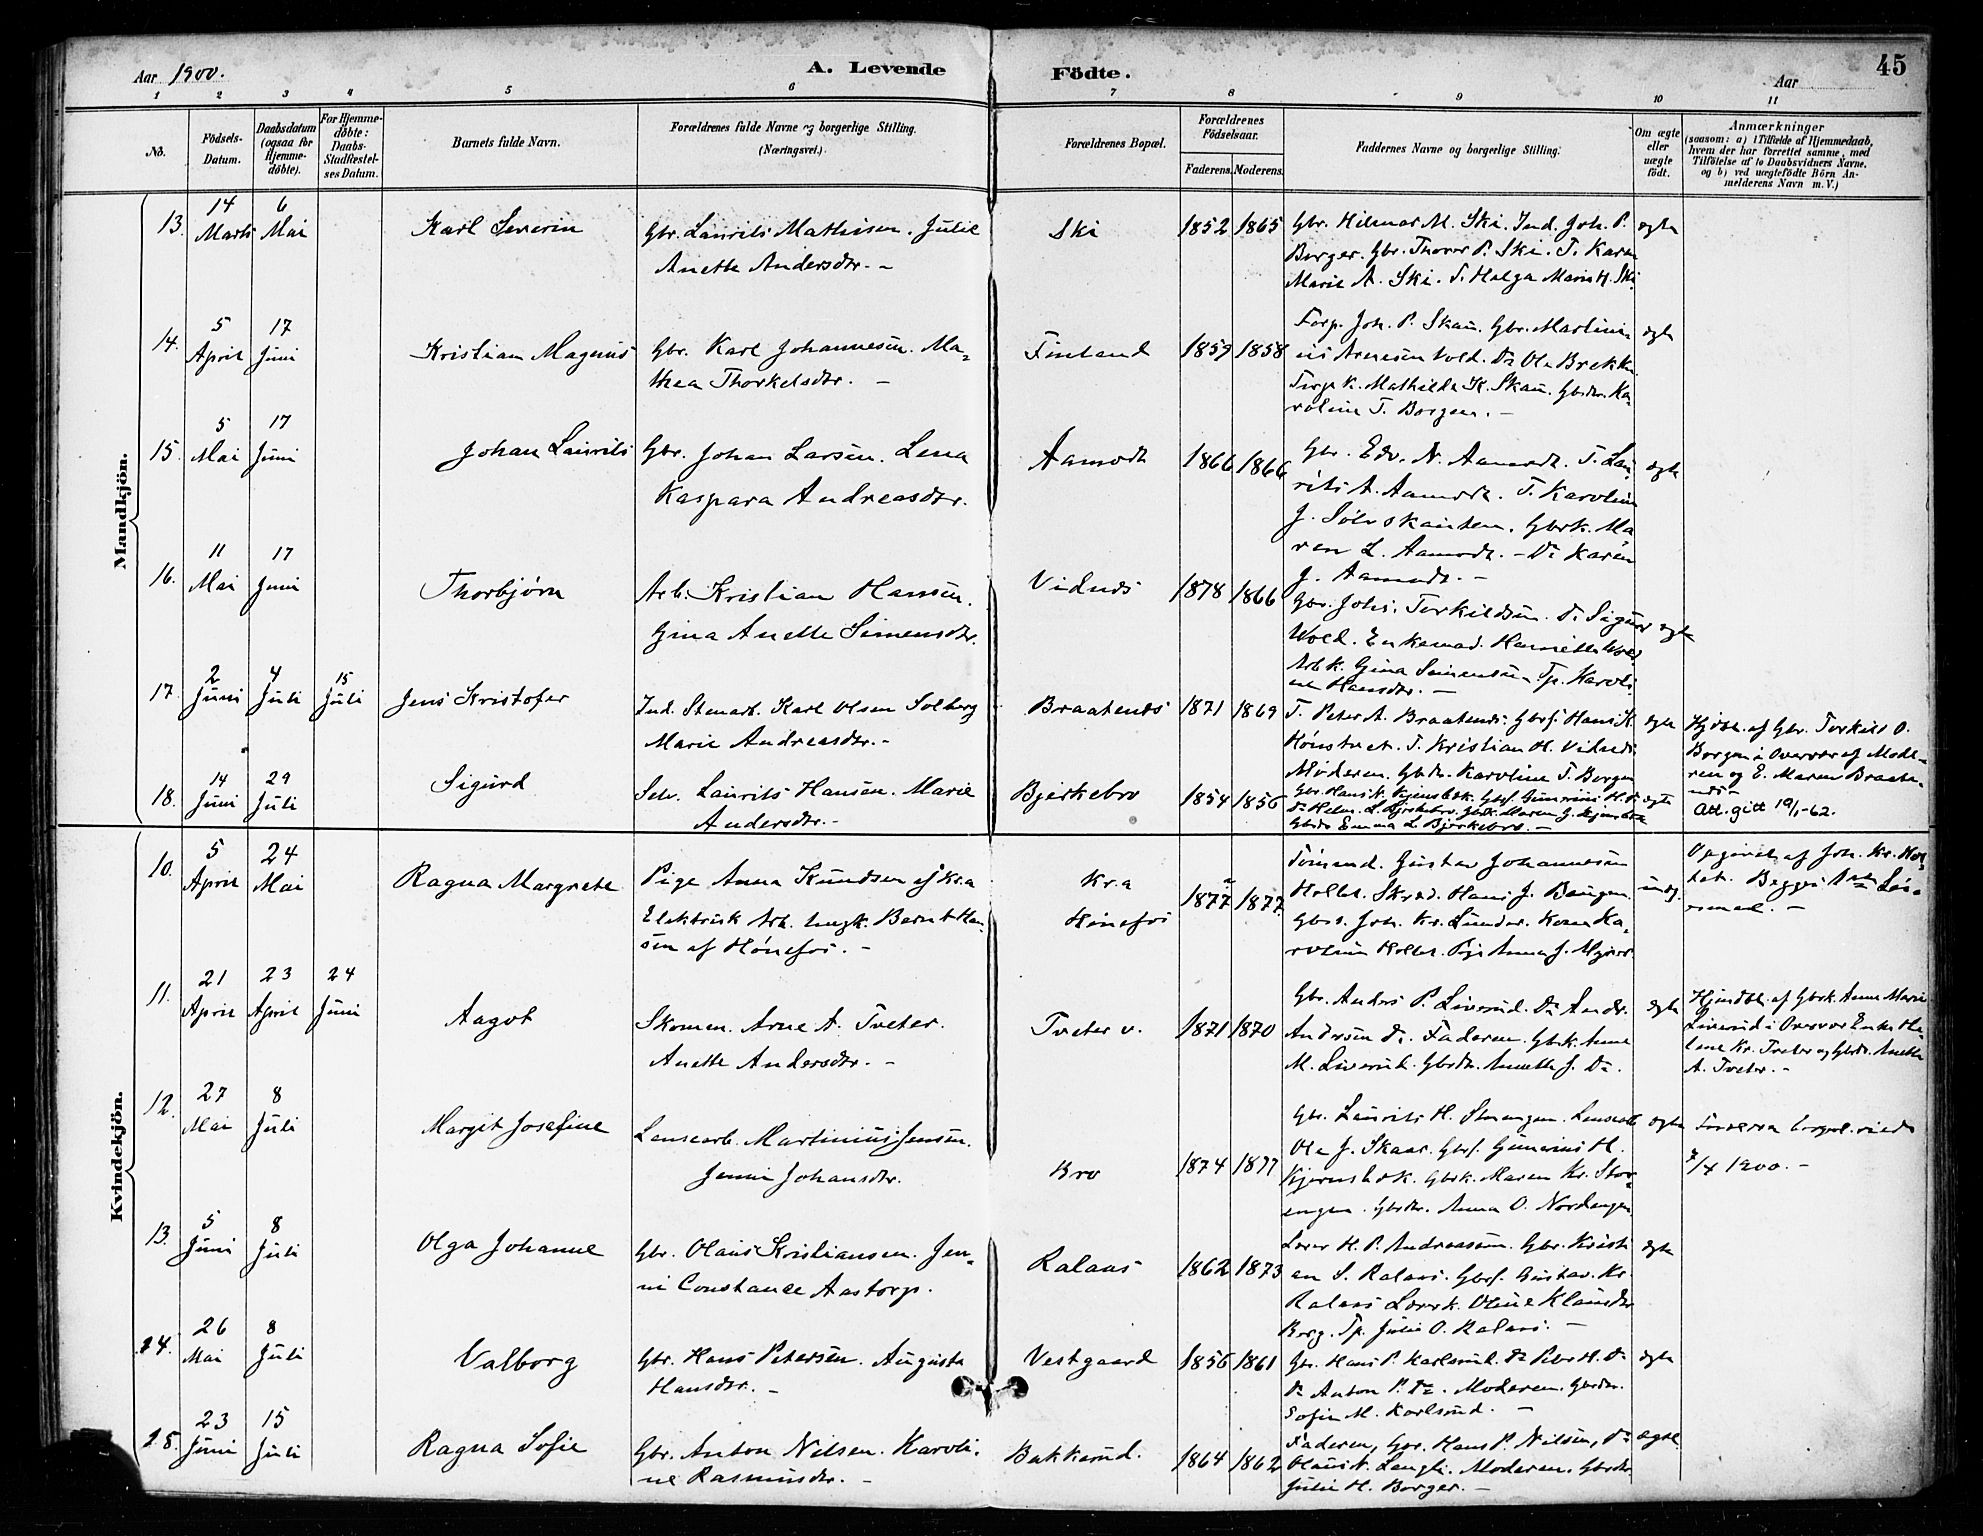 Aar 1900.
A. Levende Födte.
Aar
45
1 2 3 4 5 6 7 8 9 10 11
No.
Födsels-Datum.
Daabsdatum (ogsaa for Hjemme-döbte).
For Hjemme-döbte: Daabs-Stadfæstel-ses Datum.
Barnets fulde Navn.
Forældrenes fulde Navne og borgerlige Stilling. (Næringsvei.)
Forældrenes Bopæl.
Forældrenes Födselsaar.
Faderens. Moderens.
Faddernes Navne og borgerlige Stilling.
Om ægte eller uægte födt.
Anmærkninger
(saasom: a) i Tilfælde af Hjemmedaab,
hvem der har forrettet samme, med
Tilföielse af to Daabsvidners Navne.
og b) ved uægtefödte Börn An-
melderens Navn m. V.)
Mandkjön.
13. 14 Marts 6 Mai Karl Severin
Gbr. Laurits Mathisen. Julie
Anette Andersdtr. -
Ski 1852 1865
Gbr. Hilmar M. Ski. Ind. Joh. P.
Borger. Gbr. Thorer P. Ski. T. Karen
Marie A. Ski. T. Helga Marie H. Ski
ægte
14. 5 April 17 Juni Kristian Magnus
Gbr. Karl Johannesen. Ma-
thea Thorkelsdtr. -
Finland 1859 1858
Forp. Joh. P. Skau. Gbr. Martini-
us Arnesen Wold. Do Ole Brekke.
Forp. k. Mathilde K. Skau. Gbrdtr. Ka-
roline T. Borgen. -
ægte
15. 5 Mai 17 Juni Johan Laurits
Gbr. Johan Larsen. Lena
Kaspara Andreasdtr.
Aamodt 1866 1866
Gbr. Edv. N. Aamodt. T. Lau-
rits A. Aamodt. T. Karoline
J. Sölvskanten. Gbrk. Ma
ren L. Aamodt. - Do Karen
J. Aamodt. -
ægte
16. 11 Mai 17 Juni Thorbjørn
Arb. Kristian Hansen.
Gina Anette Simensdtr.
Vidnæs 1878 1866
Gbr. Johs. Torkildsen. Do Sigurd
Wold. Enkemad. Henriette Wold
Arb. k. Gina Simensen Tp. Karoli
ne Hansdtr. -
ægte
17. 2 Juni 4 Juli 15 Juli Jens Kristofer
Ind. Stenarb. Karl Olsen Solberg
Marie Andreasdtr. -
Braatenæs 1871 1869
T. Peter A. Braatenæs. Gbrs. Hans K.
Hönstvet. T. Kristian H. Vidnæs.
Moderen. Gbrdtr. Karoline T. Borgen
ægte
Hjdbt. af Gbr. Torkild O.
Borgen i Overvær af Mode-
ren og E. Maren Braate-
næs
Att. gitt 19/1-62.
18. 14 Juni 29 Juli Sigurd
Selv. Laurits Hansen. Marie
Andersdtr. -
Bjerkebro 1854 1856
Gbr. Hans K. Kjernsbæk. Gbrs. Gunerius H. Do
Do Helm. L. Bjerkebro. Gbrk. Maren G. Kjernsbæk
Gbrdtr. Emma L. Bjerkebro. -
ægte
Kvindekjön.
10. 5 April 24 Mai Ragna Margrete
Pige Anna Knudsen af Kra
Elektrisk Arb. Ungk. Bernt Han-
sen af Hönefos. -
Kra Hönefos 1877 1877
Tömmend. Gustav Johannesen
Hollet. Skræd. Hans J. Baugen.
Gbrs. Joh. Kr. Sundar. Kone Ka-
roline Hollet. Pige Anna J. Myrer
uæg.
Opgivet af Joh. Kr. Hol-
let. Begges 1ste Leier-
smaal. -
11. 21 April 23 April 24 Juni Aagot
Skomm. Arne A. Tveter.
Anette Andersdtr. -
Tveter v. 1871 1870
Gbr. Anders P. Liverud. Do Andr.
Andersen Do. Faderen. Gbrk. Anne
M. Liverud. Gbrdtr. Annette J. Do.
ægte
Hjmdbt. af Gbrk. Anne Marie
Liverud i Overvær Enke He-
lene Kr. Tveter og Gbrdtr. Anette
A. Tveter. -
12. 27 Mai 8 Juli Margit Josefine
Lensearb. Martinius Jensen.
Jenni Johansdtr.
Bro 1874 1877
Gbr. Laurits H. Storengen. Lensearb
Ole J. Skaar. Gbrs. Gunerius H.
Kjernsbæk. Gbrk. Maren Kr. Stor-
engen. Gbrdtr. Anna O. Nordengen
ægte
Forældrene borgel. viede
7/4 1900. -
13. 5 Juni 8 Juli Olga Johanne
Gbr. Olaus Kristiansen. Jen-
ni Constance Aastorp.
Ralaas 1862 1873
Lærer H. P. Andreassen. Gbr. Kristi
an S. Ralaas. Gbrs. Gustav. Kr.
Ralaas Lærerk. Oline Klausdtr
Borg. Tp. Julie O. Ralaas. -
ægte
14. 26 Mai 8 Juli Valborg
Gbr. Hans Petersen. Augusta
Hansdtr. -
Vestgaard 1856 1861
Gbr. Hans P. Karlsrud. Do Peter H. Do
Do Anton P. Do. Moderen. Gbrdtr.
Sofie M. Karlsrud. -
ægte
15. 23 Juni 15 Juli Ragna Sofie
Gbr. Anton Nilsen. Karoli-
ne Rasmusdtr. -
Bakkerud. 1864 1862
Faderen, Gbr. Hans P. Nilsen, Do
Olaus N. Langli. Moderen. Gbrdtr.
Julie H. Borger. -
ægte